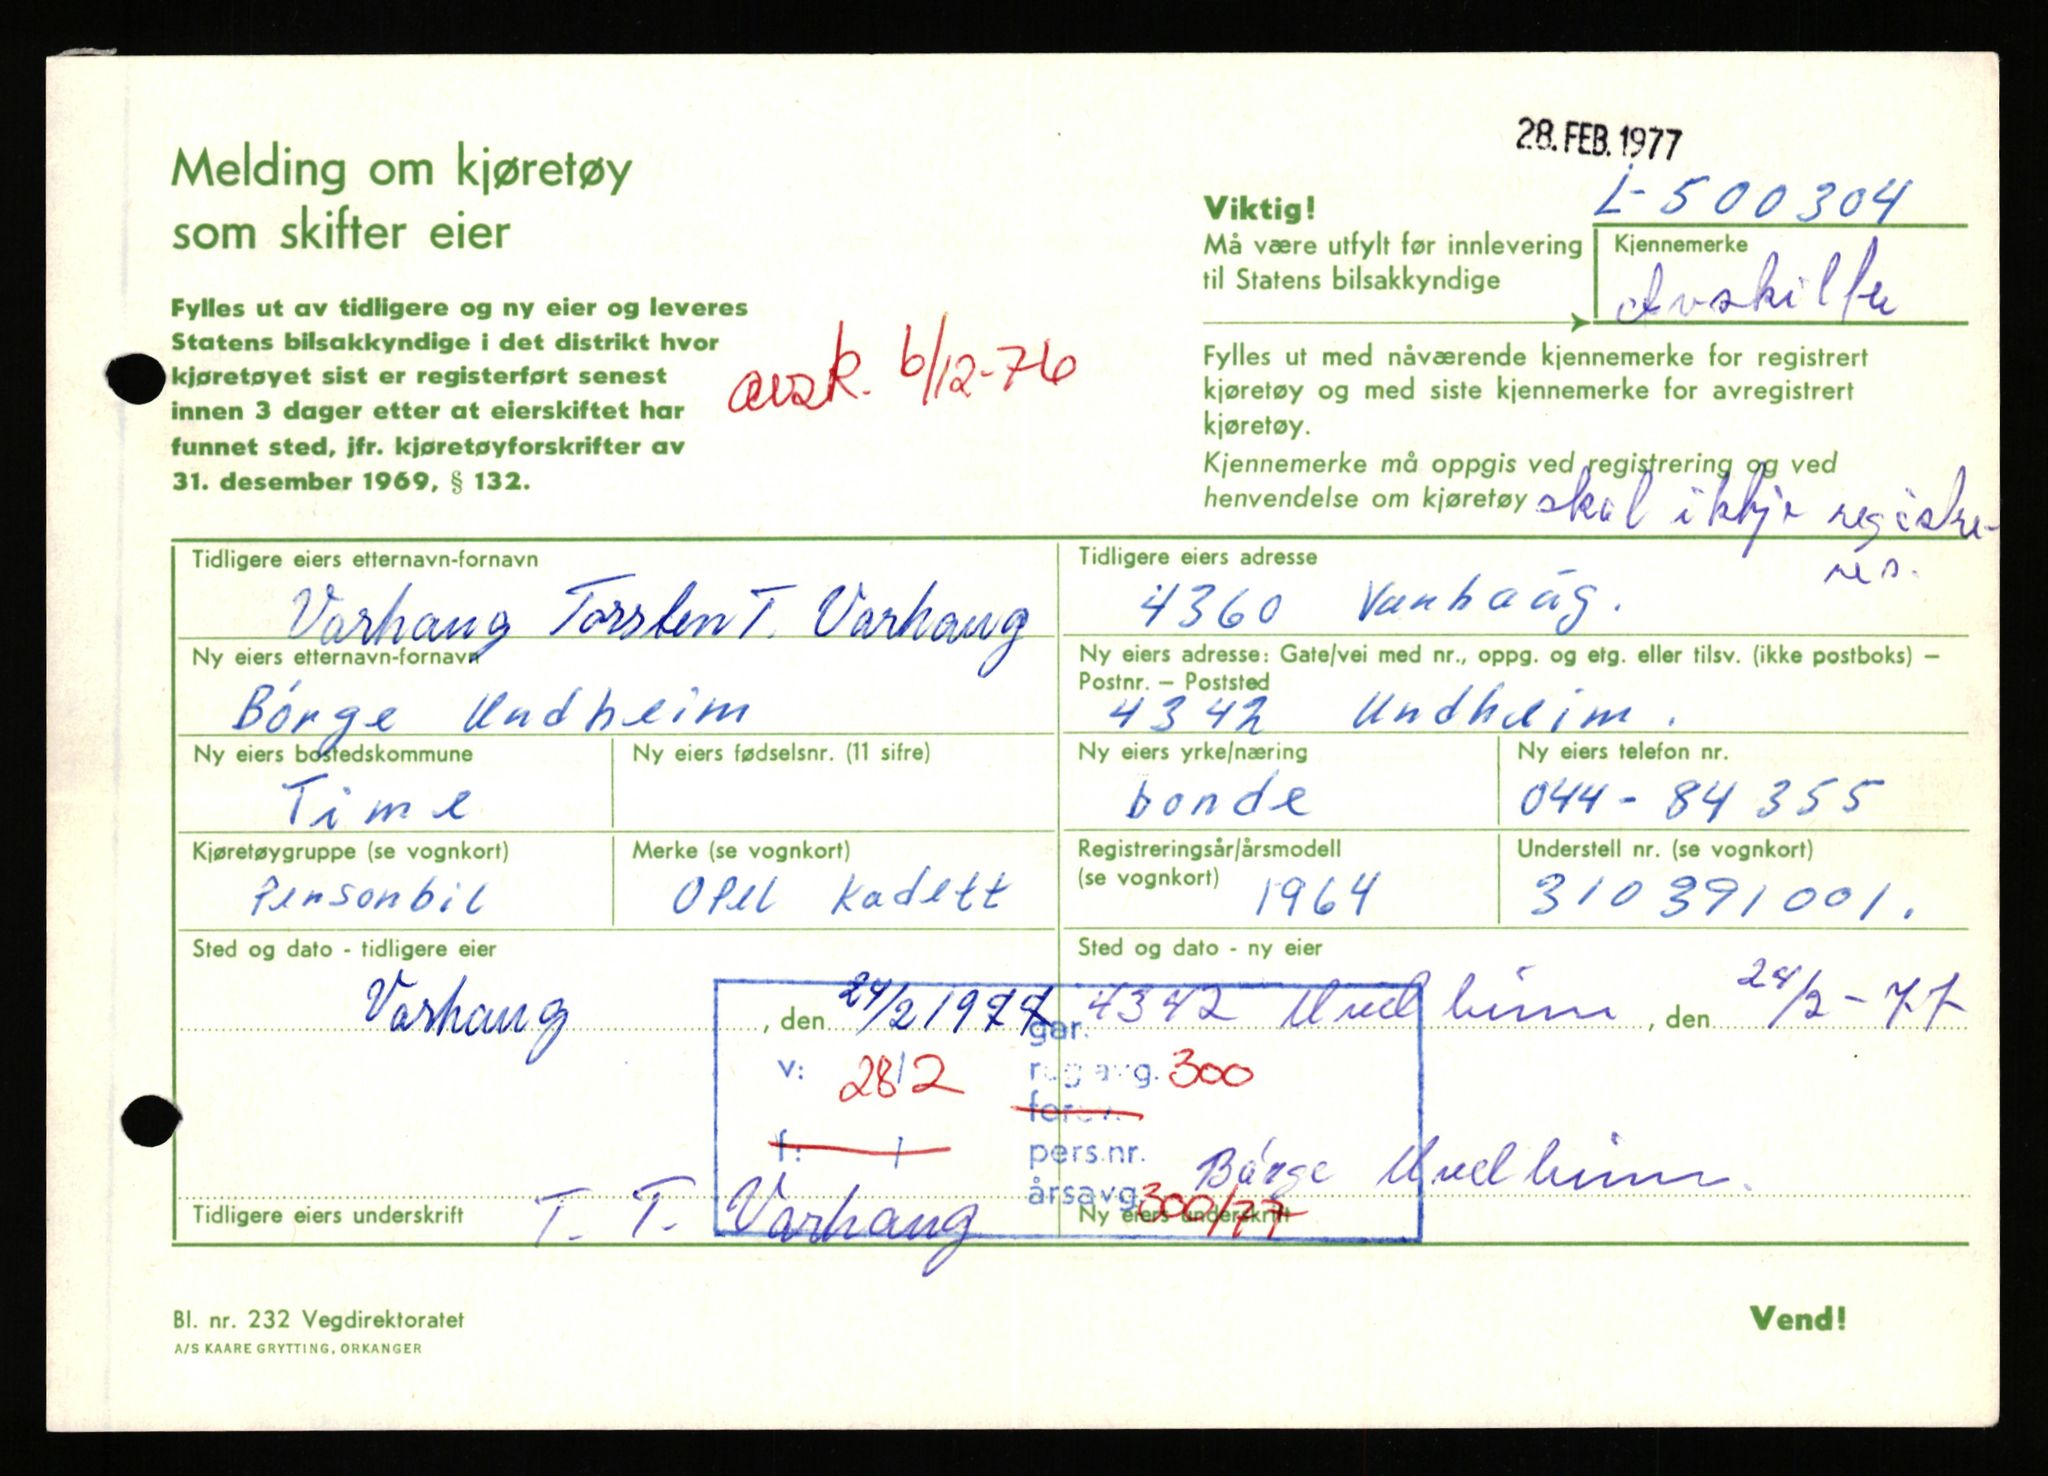 28. FEB. 1977
Melding om kjøretøy
som skifter eier
Fylles ut av tidligere og ny eier og leveres
Statens bilsakkyndige i det distrikt hvor
kjøretøyet sist er registerført senest
innen 3 dager etter at eierskiftet har
funnet sted, jfr. kjøretøyforskrifter av
31. desember 1969, § 132.
avsk. 6/12-76
Viktig!
Må være utfylt før innlevering
til Statens bilsakkyndige
L-500304
Kjennemerke
Avskilta
Fylles ut med nåværende kjennemerke for registrert
kjøretøy og med siste kjennemerke for avregistrert
kjøretøy.
Kjennemerke må oppgis ved registrering og ved
henvendelse om kjøretøy skal ikkje registre-
res.
Tidligere eiers etternavn-fornavn
Varhaug Torsten T. Varhaug
Tidligere eiers adresse
4360 Varhaug.
Ny eiers etternavn-fornavn
Börge Undheim
Ny eiers adresse: Gate/vei med nr., oppg. og etg. eller tilsv. (ikke postboks) –
Postnr. – Poststed
4342 Undheim.
Ny eiers bostedskommune
Time
Ny eiers fødselsnr. (11 sifre)
Ny eiers yrke/næring
bonde
Ny eiers telefon nr.
044-84355
Kjøretøygruppe (se vognkort)
Personbil
Merke (se vognkort)
Opel Kadett
Registreringsår/årsmodell
(se vognkort) 1964
Understell nr. (se vognkort)
310391001.
Sted og dato - tidligere eier
Varhaug, den 24/2 1977
Sted og dato - ny eier
4342 Undheim, den 24/2-77
gar.
v: 28/2
reg avg. 300
f: /
pers.nr.
årsavg. 300/77
Tidligere eiers underskrift T. T. Varhaug
Börge Undheim.
Ny eiers underskrift
Bl. nr. 232 Vegdirektoratet
A/S KAARE GRYTTING, ORKANGER
Vend!